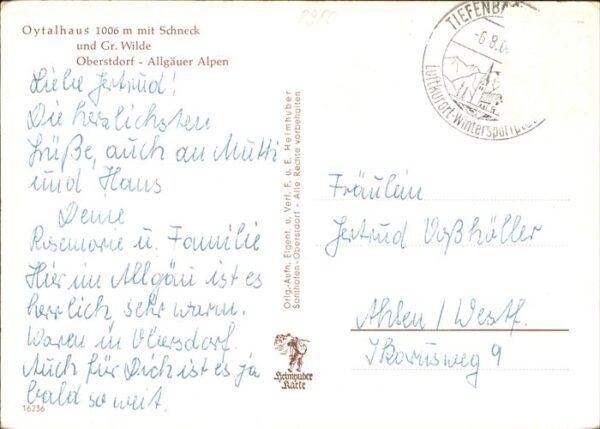 Oytalhaus 1006 m mit Schneck
und Gr. Wilde
Oberstdorf - Allgäuer Alpen
Liebe Gertrud!
Die herzlichsten
Grüße, auch an Mutti
und Hans
Deine
Rosemarie u. Familie
Hier im Allgäu ist es
herrlich sehr warm.
Waren in Oberstdorf.
Auch für Dich ist es ja
bald so weit.
16236
Orig.-Aufn. Eigent. u. Verl. F. u. E. Heimhuber
Sonthofen-Oberstdorf - Alle Rechte vorbehalten
Heimhuber
Karte
-6.8.
Luftkurort-Wintersportplatz
Fräulein
Gertrud Voßhöller
Ahlen / Westf.
Ikarusweg 9